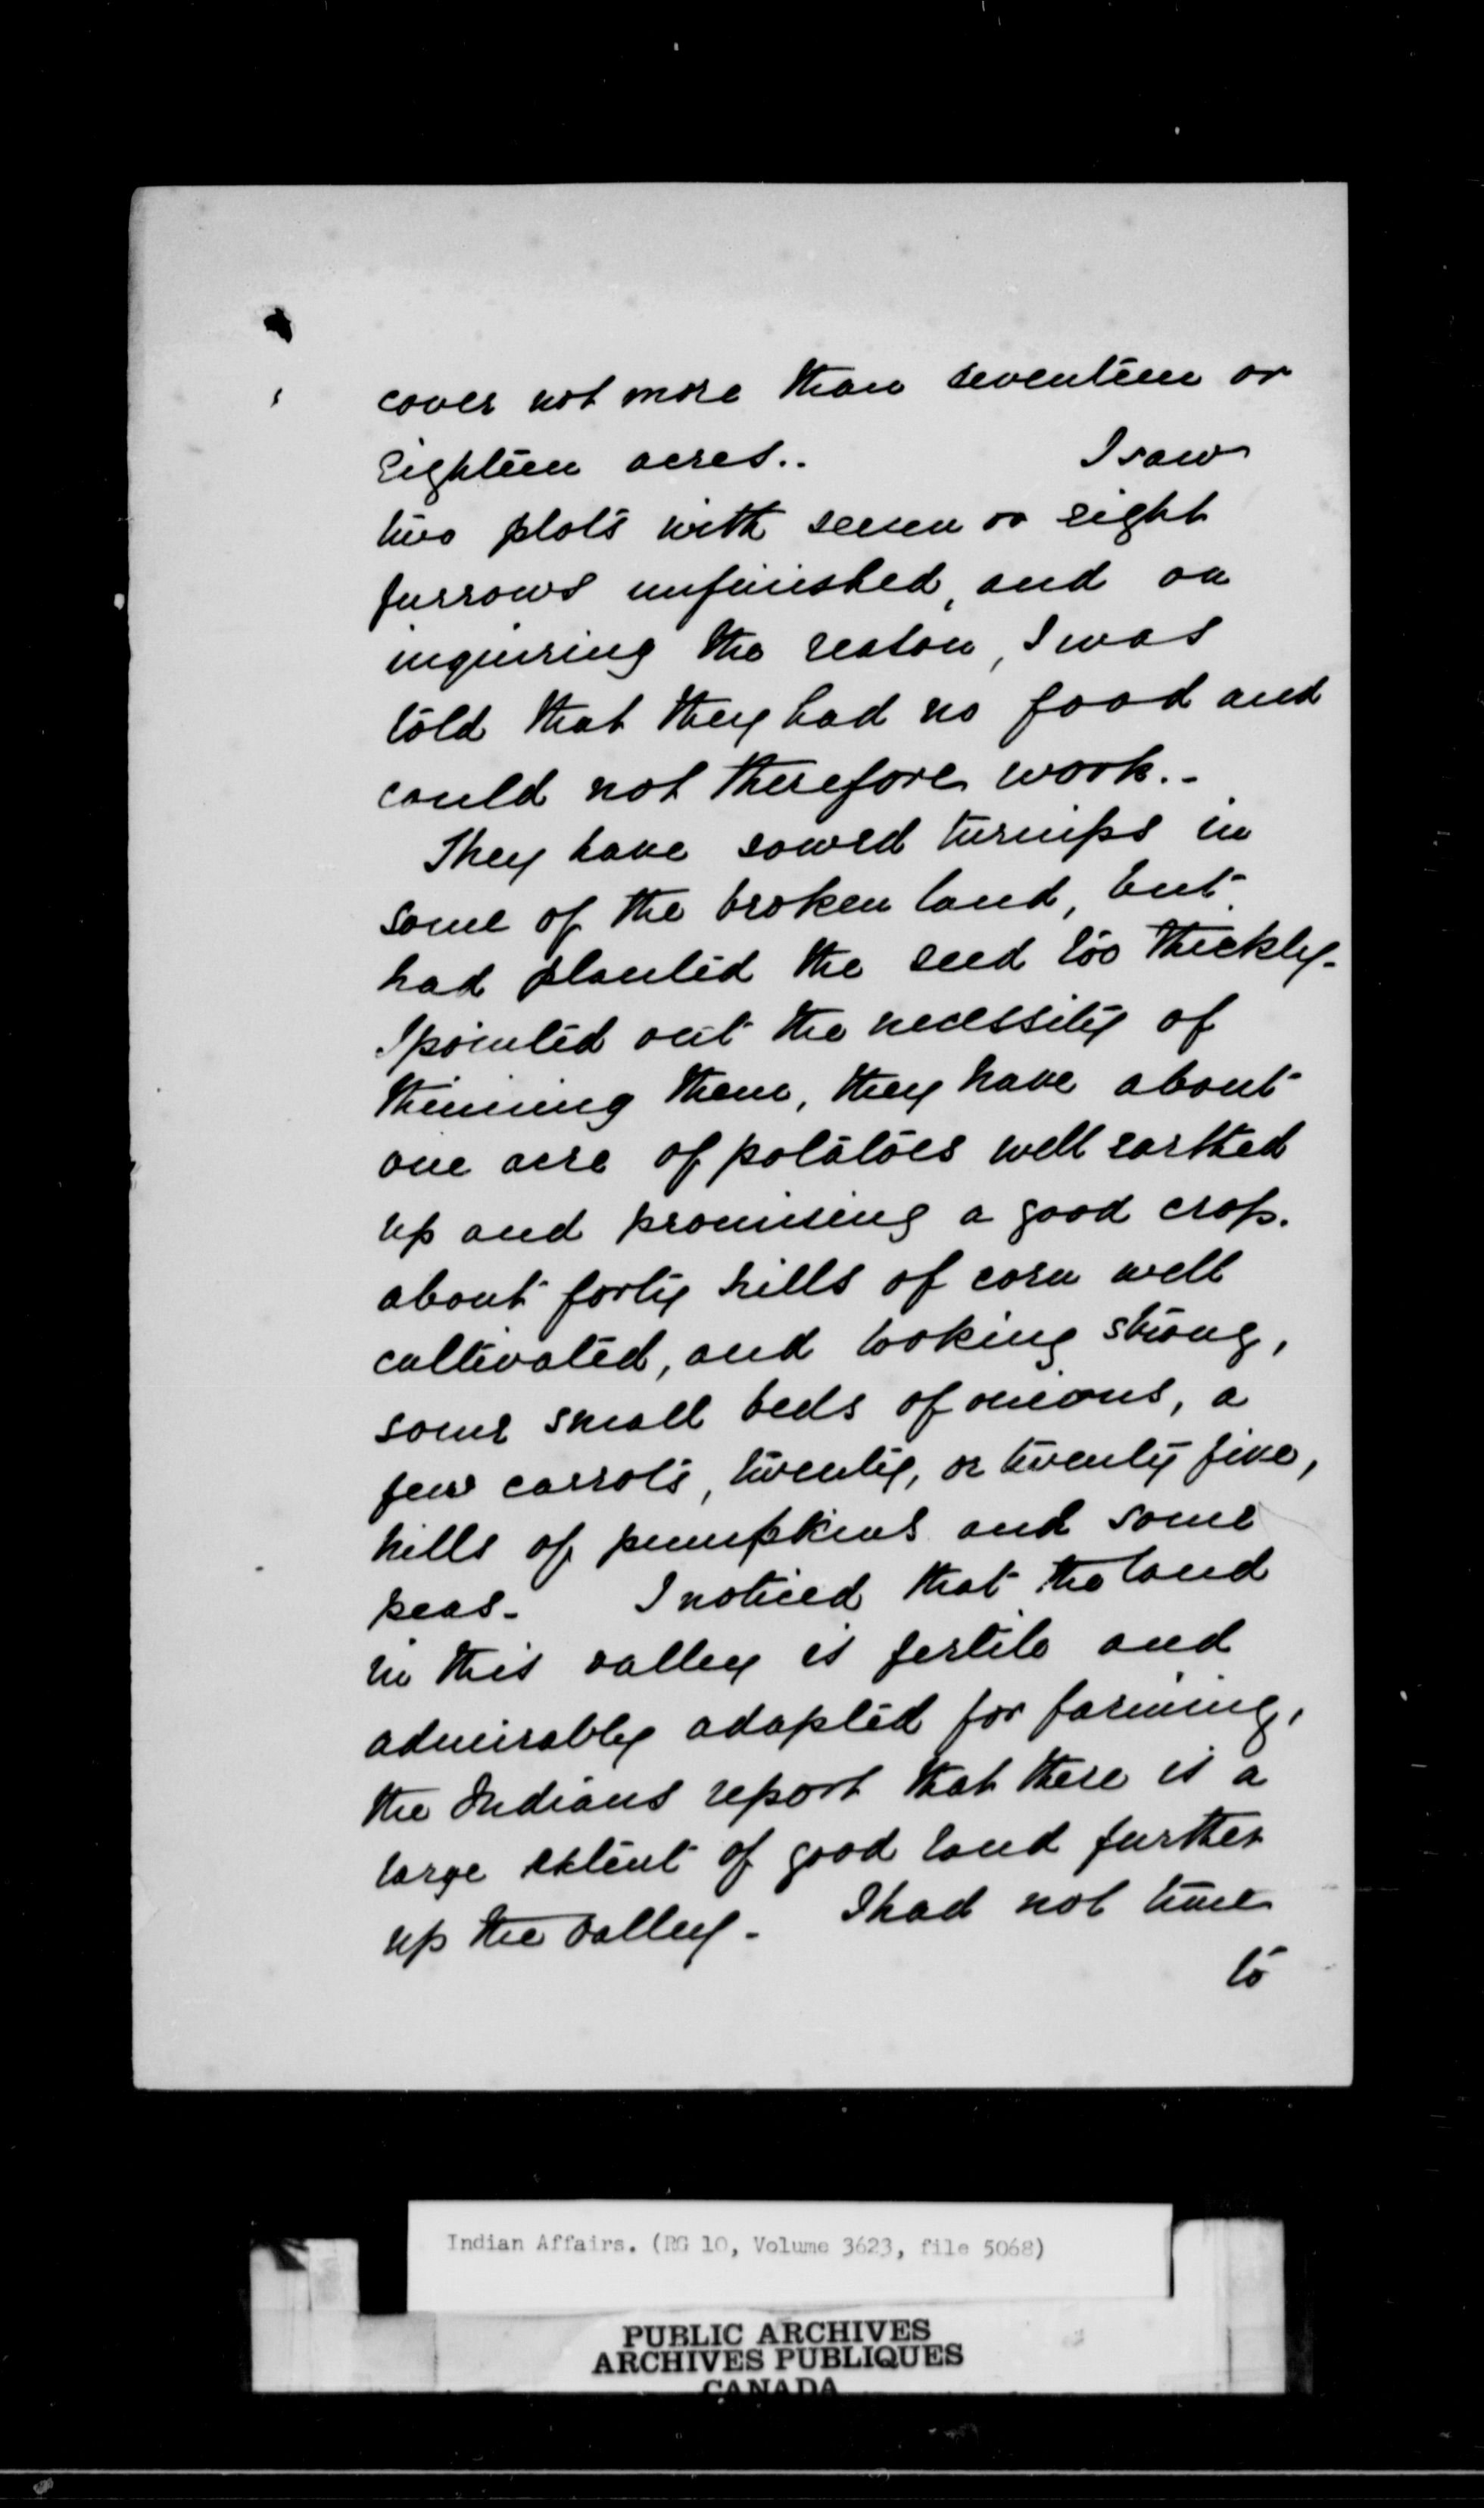 cover not more than seventeen or
Eighteen acres.. I saw
two plots with seven or eight
furrows unfinished, and on
inquiring the reason, I was
told that they had no food and
could not therefore work..
They have sowed turnips in
some of the broken land, but
had planted the seed too thickly-
I pointed out the necessity of
thinning them, they have about
one acre of potatoes well earthed
up and promising a good crop.
about forty hills of corn well
cultivated, and looking strong,
some small beds of onions, a
few carrots, twenty, or twenty five,
hills of pumpkins and some
peas- I noticed that the land
in this valley is fertile and
admirably adapted for farming,
the Indians report that there is a
large extent of good land further
up the valley- I had not time
to
Indian Affairs. (RG 10, Volume 3623, file 5068)
PUBLIC ARCHIVES
ARCHIVES PUBLIQUES
CANADA